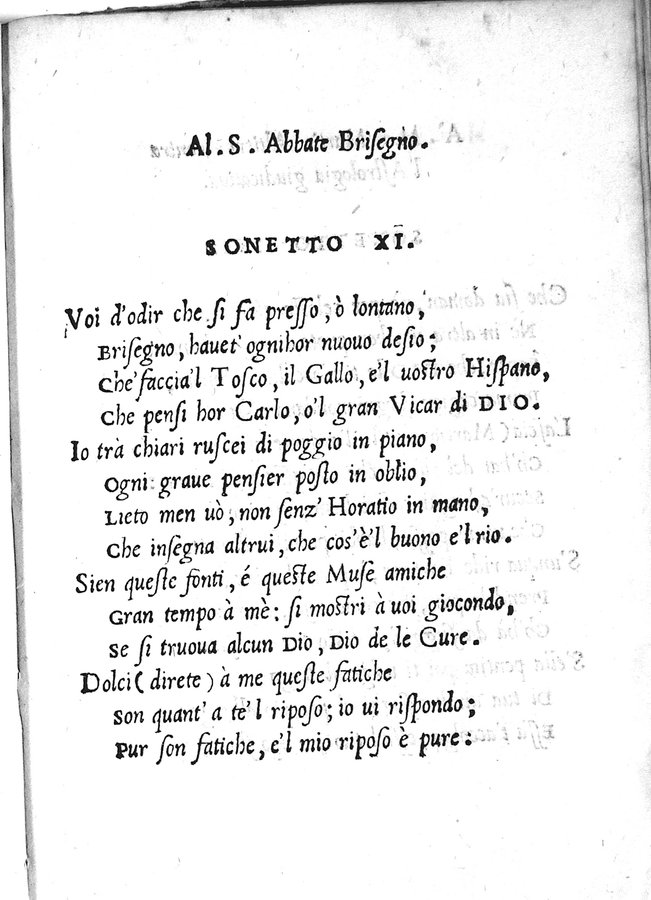 Al. S. Abbate Briſegno.
SONETTO XI.
Voi d'odir che ſi fa preſſo, ò lontano,
Briſegno, hauet' ognihor nuouo deſio;
Che' faccia'l Toſco, il Gallo, e'l uoſtro Hiſpano,
Che penſi hor Carlo, o'l gran Vicar di DIO.
Io trà chiari ruſcei di poggio in piano,
Ogni graue penſier poſto in oblio,
Lieto men uò, non ſenz' Horatio in mano,
Che inſegna altrui, che cos'è'l buono e'l rio.
Sien queſte fonti, é queſte Muſe amiche
Gran tempo à mè: ſi moſtri à uoi giocondo,
Se ſi truoua alcun Dio, Dio de le Cure.
Dolci (direte) à me queſte fatiche
Son quant' a te'l ripoſo; io ui riſpondo;
Pur ſon fatiche, e'l mio ripoſo è pure: